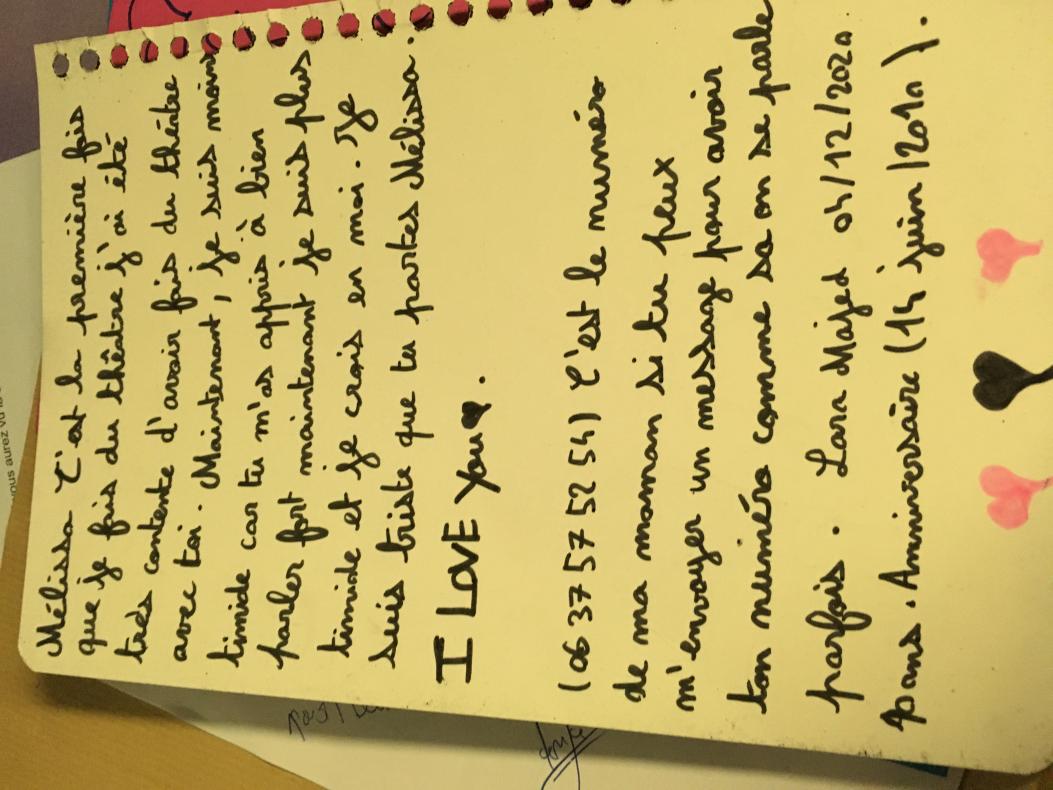 Mélissa C'est la première fois
que je fais du théâtre j'ai été
très contente d'avoir fais du théâtre
avec toi. Maintenant, je suis moins
timide car tu m'as appris à bien
parler fort maintenant je suis plus
timide et je crois en moi. Je
suis triste que tu partes Mélissa.
I LOVE You♥.
(06 37 57 52 54) C'est le numéro
de ma maman si tu peux
m'envoyer un message pour avoir
ton numéro comme sa on se parle
parfois. Lara Majed 04/12/2020
ans. Anniversaire (14 juin /2010).
vous aurez vu